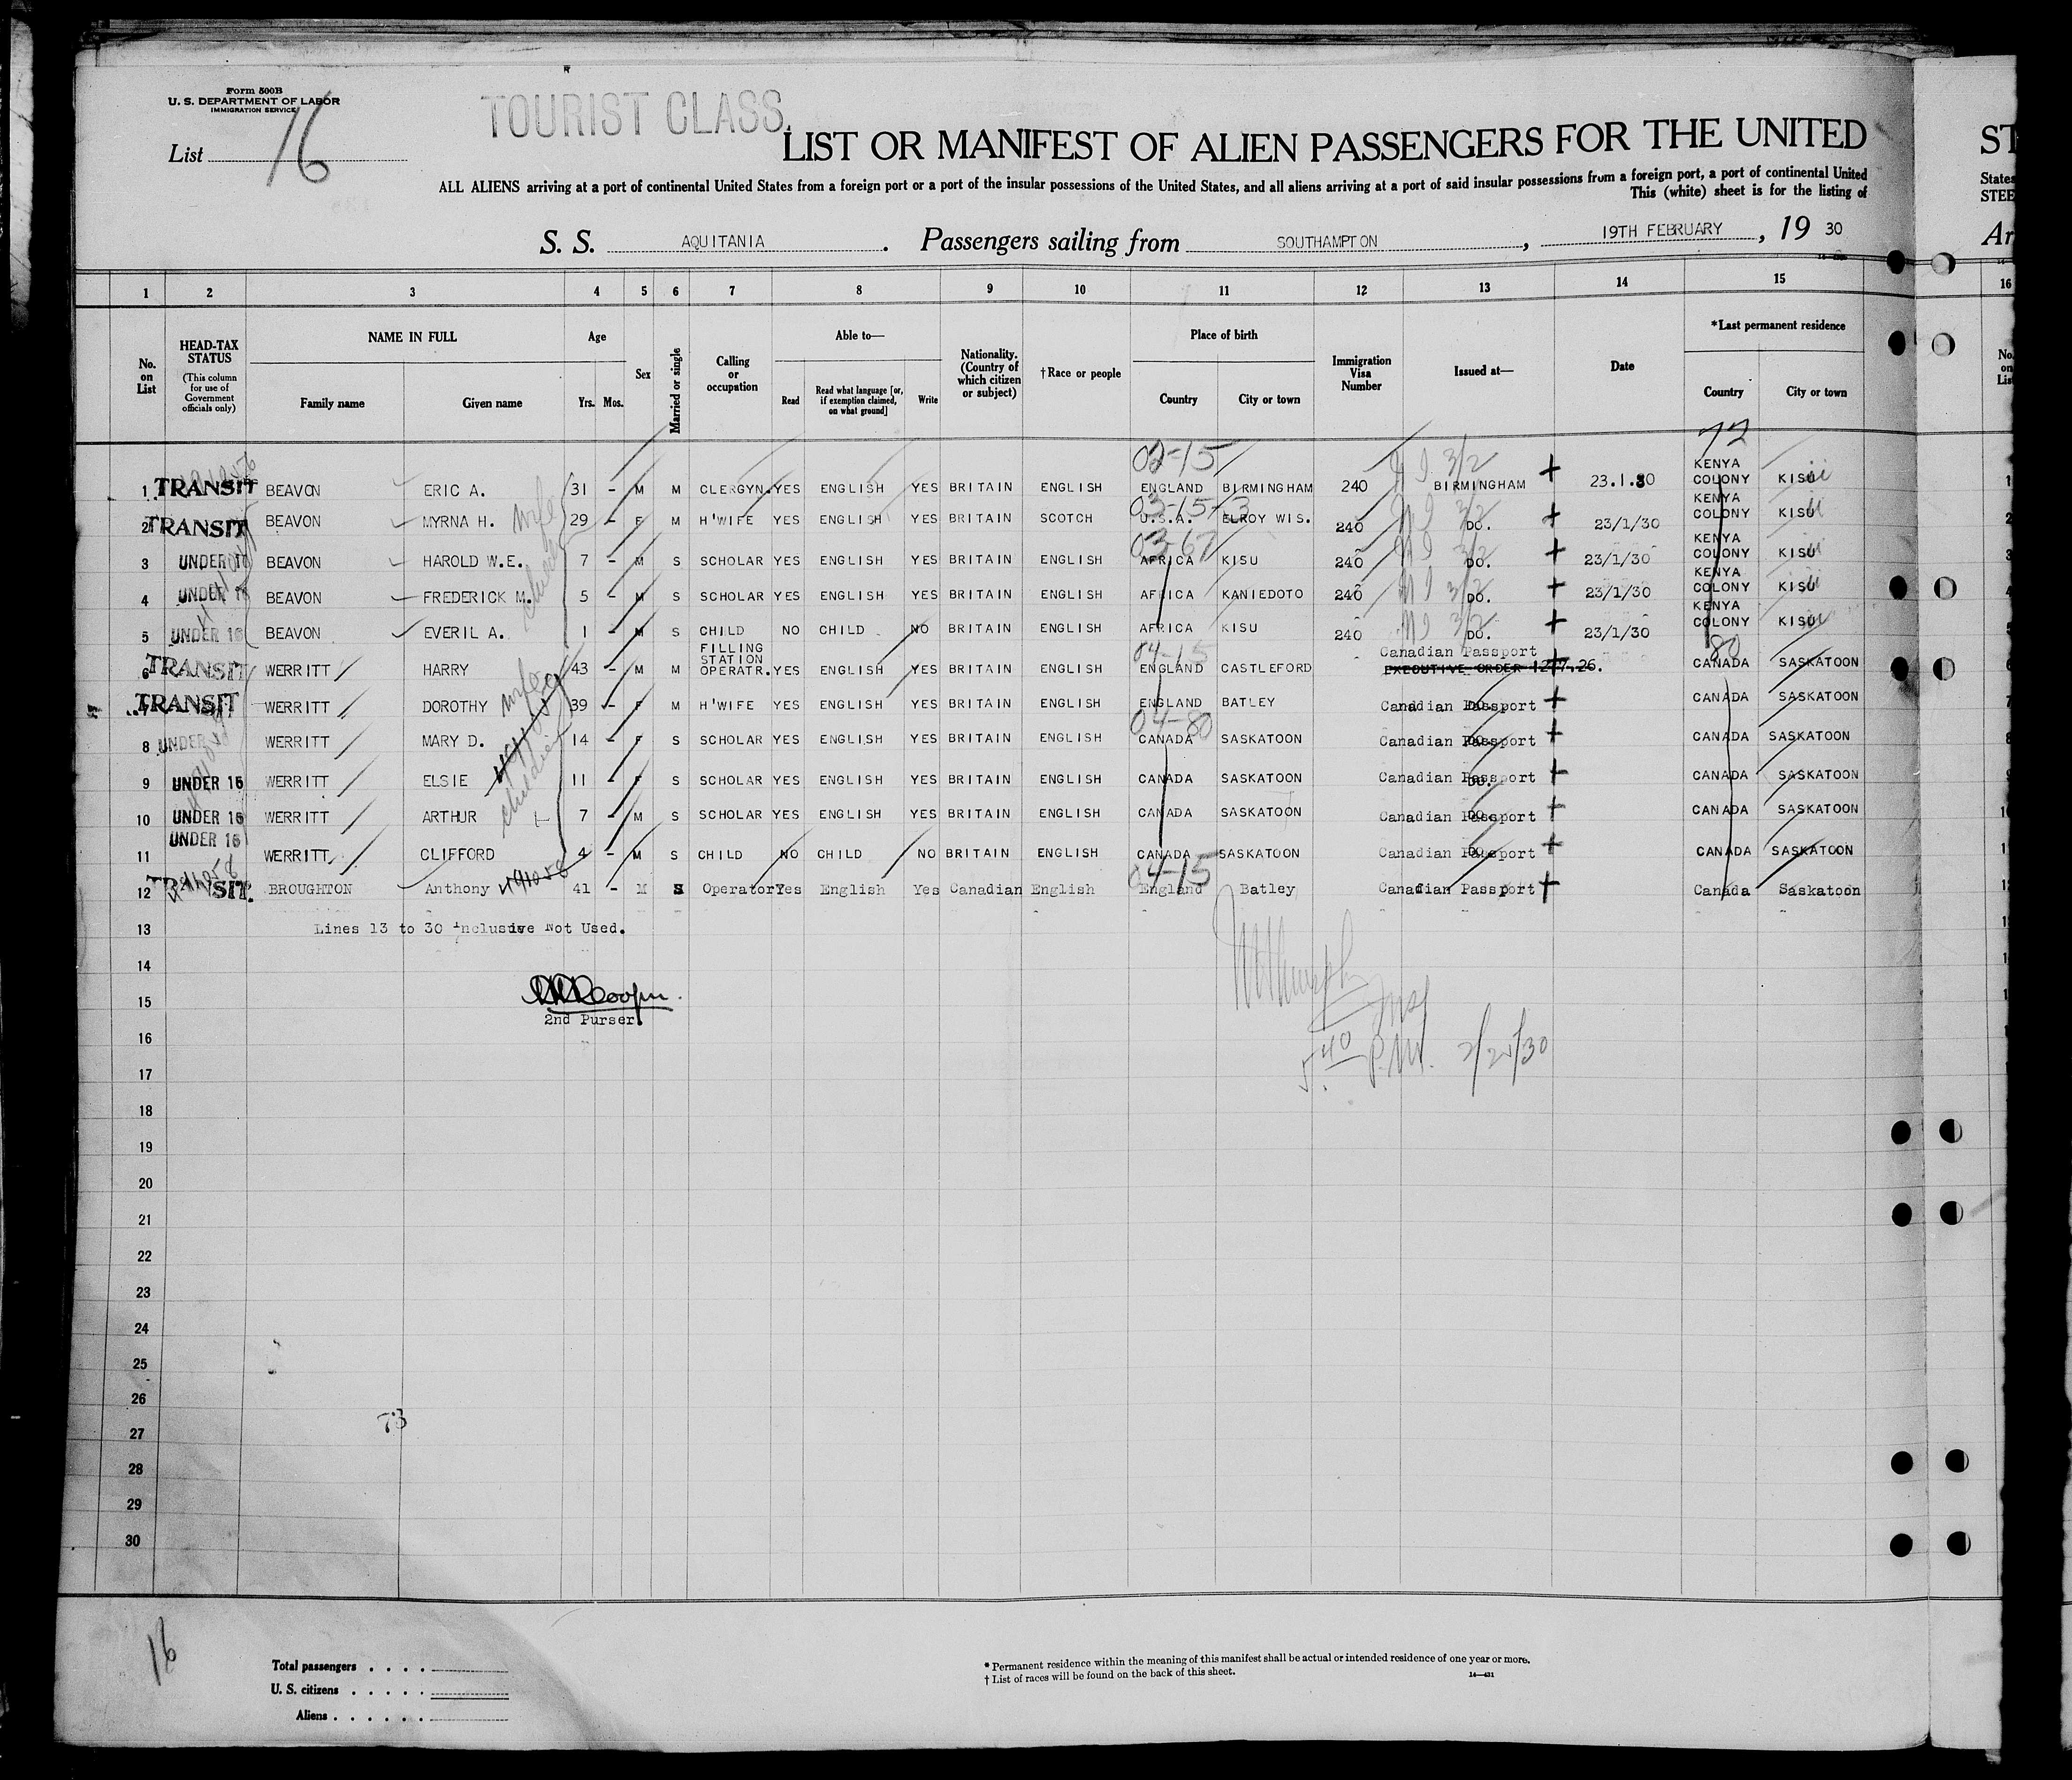 Form 500B
U. S. DEPARTMENT OF LABOR
IMMIGRATION SERVICE
List 16
TOURIST CLASS.
LIST OR MANIFEST OF ALIEN PASSENGERS FOR THE UNITED
ST
ALL ALIENS arriving at a port of continental United States from a foreign port or a port of the insular possessions of the United States, and all aliens arriving at a port of said insular possessions from a foreign port, a port of continental United
States
This (white) sheet is for the listing of
STEE
S. S. AQUITANIA. Passengers sailing from SOUTHAMPTON, 19TH FEBRUARY, 19 30
Ar
1 2 3 4 5 6 7 8 9 10 11 12 13 14 15 16
No. on List
HEAD-TAX STATUS (This column for use of Government officials only)
NAME IN FULL Family name Given name
Age Yrs. Mos.
Sex
Married or single
Calling or occupation
Able to— Read Read what language [or, if exemption claimed, on what ground] Write
Nationality. (Country of which citizen or subject)
†Race or people
Place of birth Country City or town
Immigration Visa Number
Issued at—
Date
*Last permanent residence Country City or town
No. on List
02-15 3/2 72
1 TRANSIT BEAVON ERIC A. 31 - M M CLERGYN. YES ENGLISH YES BRITAIN ENGLISH ENGLAND BIRMINGHAM 240 BIRMINGHAM 23.1.30 KENYA COLONY KISU
03-15-3
2 TRANSIT BEAVON MYRNA H. wife 29 - F M H'WIFE YES ENGLISH YES BRITAIN SCOTCH U.S.A. ELROY WIS. 240 DO. 23/1/30 KENYA COLONY KISU
03-67
3 UNDER 16 BEAVON HAROLD W.E. 7 - M S SCHOLAR YES ENGLISH YES BRITAIN ENGLISH AFRICA KISU 240 DO. 23/1/30 KENYA COLONY KISU
4 UNDER 16 BEAVON FREDERICK M. 5 - M S SCHOLAR YES ENGLISH YES BRITAIN ENGLISH AFRICA KANIEDOTO 240 DO. 23/1/30 KENYA COLONY KISU
5 UNDER 16 BEAVON EVERIL A. 1 - M S CHILD NO CHILD NO BRITAIN ENGLISH AFRICA KISU 240 DO. 23/1/30 KENYA COLONY KISU
04-15 80
6 TRANSIT WERRITT HARRY 43 - M M FILLING STATION OPERATR. YES ENGLISH YES BRITAIN ENGLISH ENGLAND CASTLEFORD Canadian Passport EXECUTIVE ORDER 12.7.26. CANADA SASKATOON
7 TRANSIT WERRITT DOROTHY wife 39 - F M H'WIFE YES ENGLISH YES BRITAIN ENGLISH ENGLAND BATLEY Canadian Passport CANADA SASKATOON
04-80
8 UNDER WERRITT MARY D. 14 - F S SCHOLAR YES ENGLISH YES BRITAIN ENGLISH CANADA SASKATOON Canadian Passport CANADA SASKATOON
9 UNDER 16 WERRITT ELSIE 11 - F S SCHOLAR YES ENGLISH YES BRITAIN ENGLISH CANADA SASKATOON Canadian Passport CANADA SASKATOON
10 UNDER 16 WERRITT ARTHUR children 7 - M S SCHOLAR YES ENGLISH YES BRITAIN ENGLISH CANADA SASKATOON Canadian Passport CANADA SASKATOON
11 UNDER 16 WERRITT CLIFFORD 4 - M S CHILD NO CHILD NO BRITAIN ENGLISH CANADA SASKATOON Canadian Passport CANADA SASKATOON
04-15
12 TRANSIT. BROUGHTON Anthony 41 - M S Operator Yes English Yes Canadian English England Batley Canadian Passport Canada Saskatoon
13 Lines 13 to 30 inclusive Not Used.
14
15 Cooper.
2nd Purser.
16 5.40 P.M. 2/25/30
17
18
19
20
21
22
23
24
25
26
73
27
28
29
30
16
Total passengers
U. S. citizens
Aliens
* Permanent residence within the meaning of this manifest shall be actual or intended residence of one year or more.
† List of races will be found on the back of this sheet.
14—431